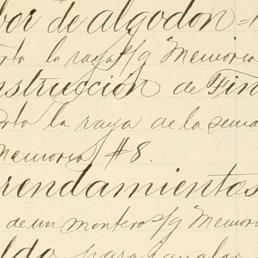 bor de algodon =
la raya s/g "Memoria
nstruccion de Fin
la raya de la sema
Memoria #8.
rendamientos
de un montero s/g "Memor
para